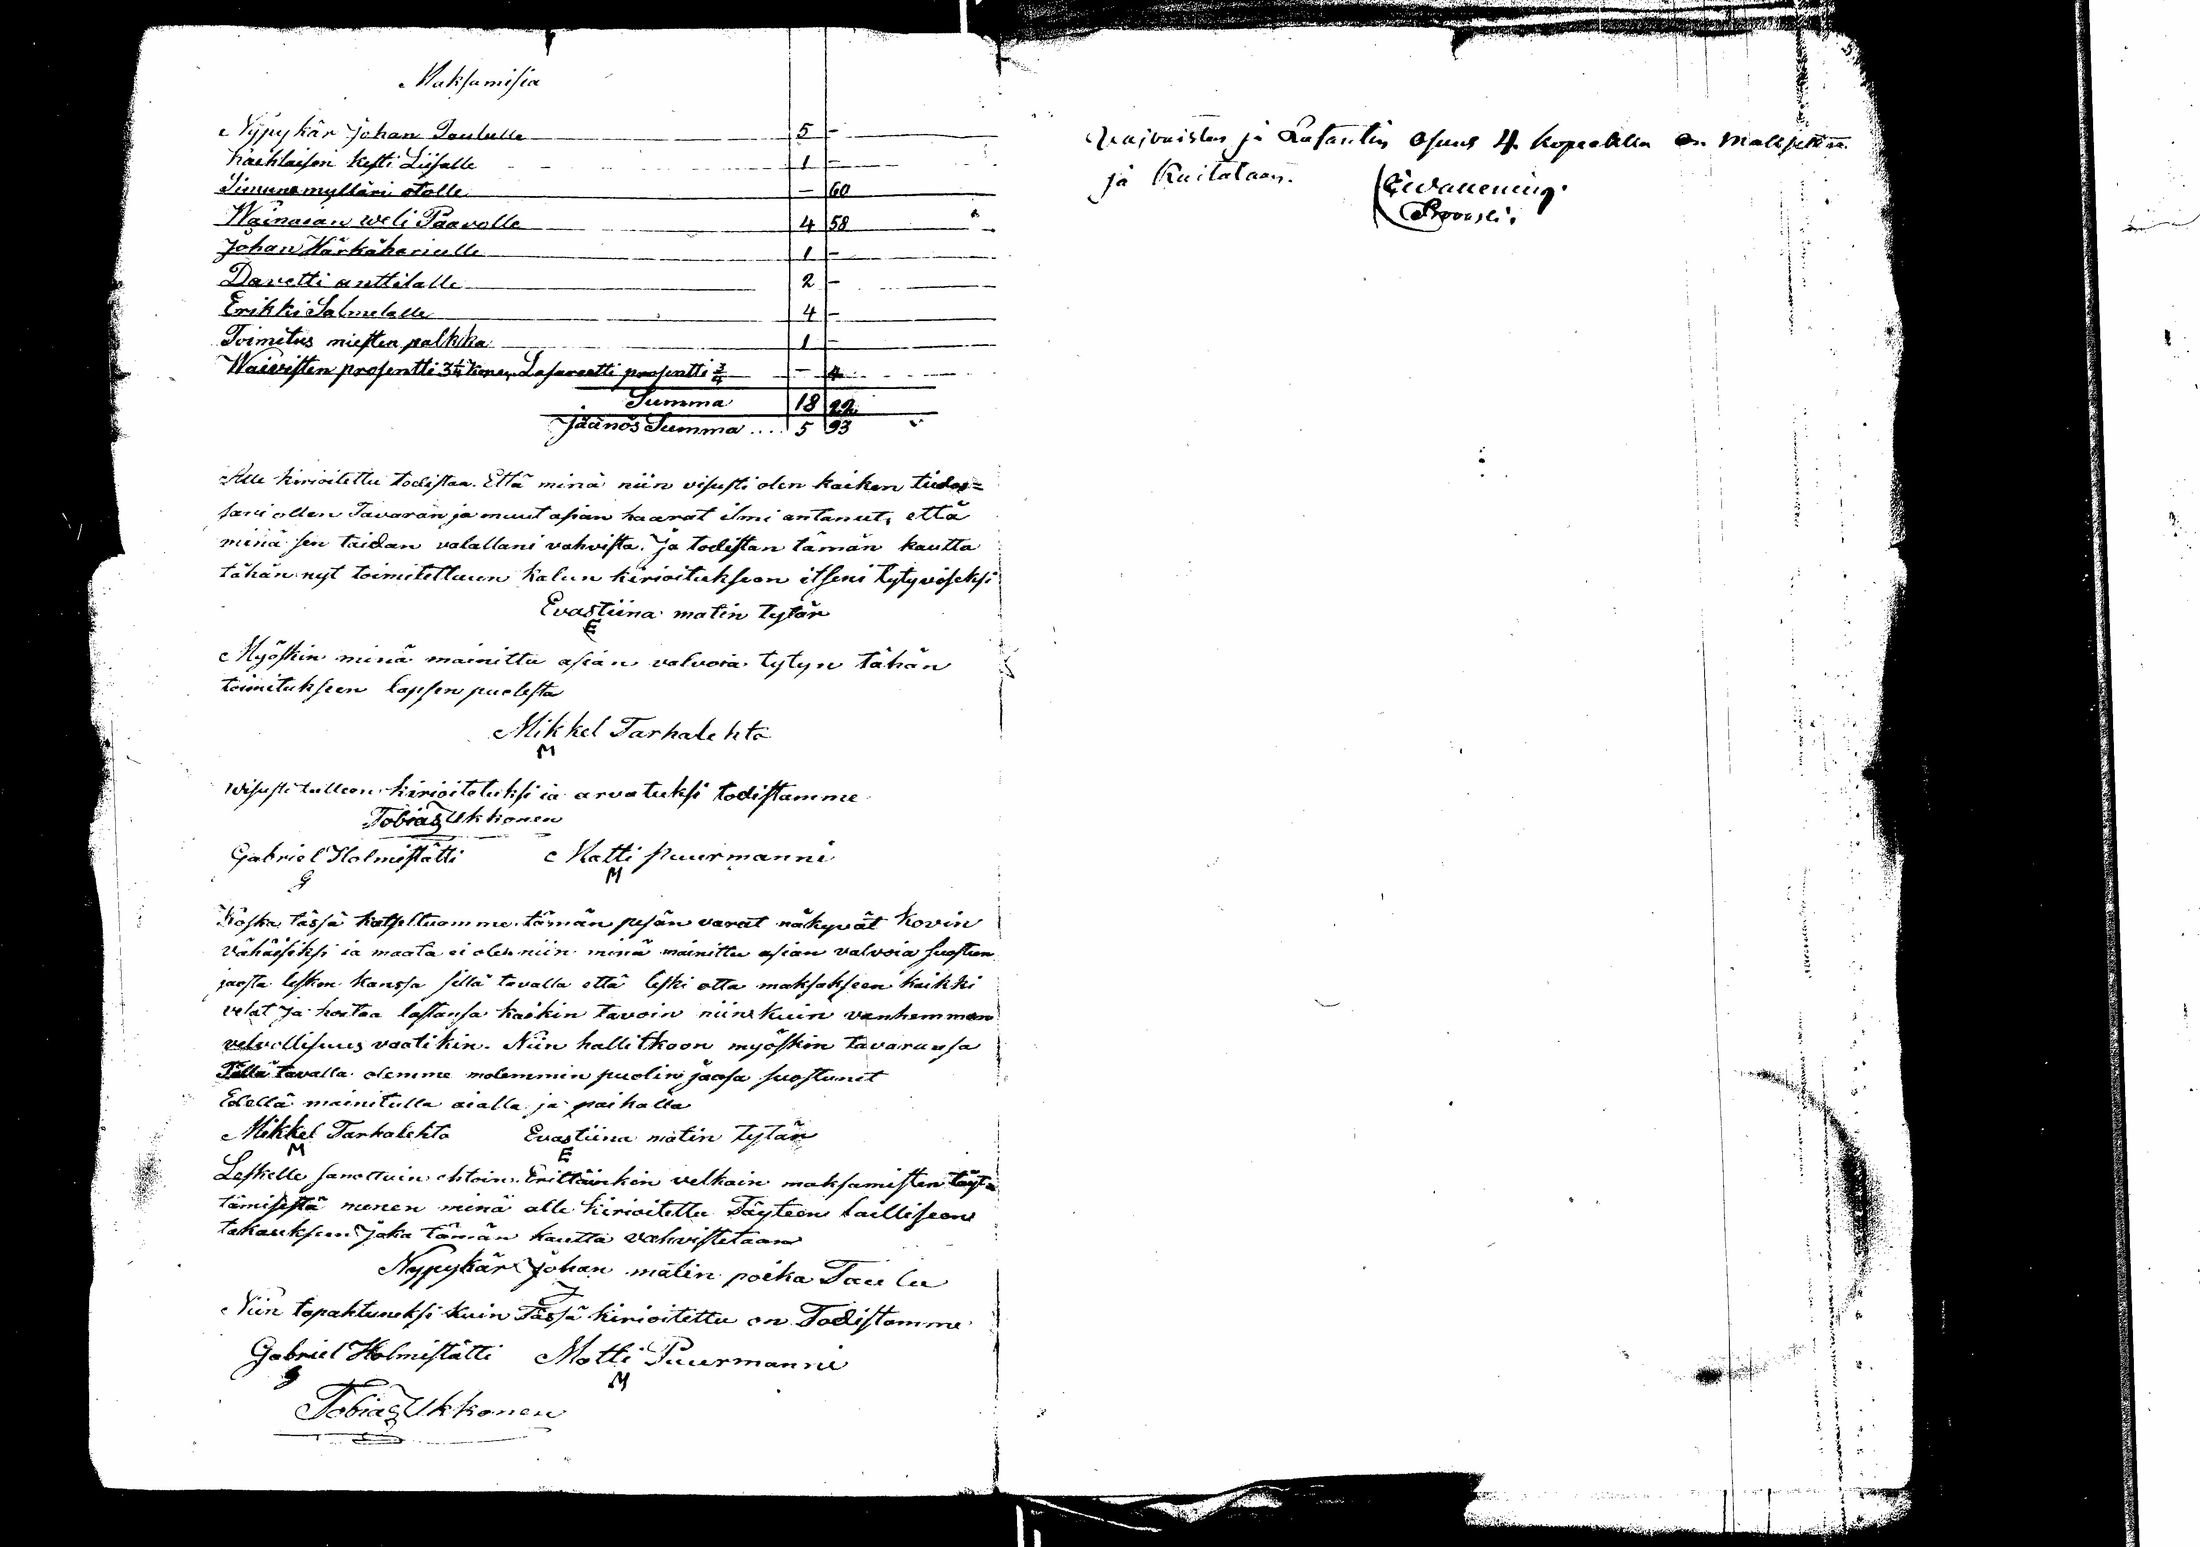 Maksamisia
Nypykär Johan Taululle 5 –
haiklaisen kesti Liisalle 1 –
Simuna mylläri otolle – 60
Wainaian weli Paavolle 4 58
Johan Härkähariulle 1 –
Davetti anttilalle 2 –
Erikki Salmelalle 4 –
Toimitus miesten palkka 1 –
Waivisten prosentti 3¼ kope, Lasareetti prosentti ¾ – 4
Summa 18 22
Jäänös Summa .... 5 93
Alle kirioitettu todistan. Että minä niin visusti olen kaiken tiedos=
sani ollen Tavaran ja muut asian haarat ilmi antanut, että
minä sen taidan valallani vahvista. Ja todistan tämän kautta
tähän nyt toimitettuun kalun kirioitukseen itseni tytyväiseksi
Evastiina matin tytär
E
Myöskin minä mainittu asian valvoia tytyn tähän
toimitukseen lapsen puolesta
Mikkel Tarhalehto
M
wisusti tulleen kirioitetuksi ia arvatuksi todistamme
Tobias Ukkonen
Gabriel Holmistätti Matti Puurmanni
G M
Koska tässä katseltuamme tämän pesän varat näkyvät kovin
vähäiseksi ia maata ei ole niin minä mainittu asian valvoia suostun
jaosta lesken kanssa sillä tavalla että leski otta maksakseen kaikki
velat ja hoitaa lastansa kaikin tavoin niinkuin vanhemman
velvollisuus vaatikin. Niin hallitkoon myöskin tavaransa
Tällä tavalla olemme molemmin puolin jaosa suostunet
Edellä mainitulla aialla ja paikalla
Mikkel Tarhalehto Evastiina matin tytär
M E
Leskelle sanottuin ehtoin Erittäinkin velkain maksamisten täyt
tämisestä menen minä alle kirioitettu Täyteen lailliseen
takaukseen Joka tämän kautta vahvistetaan
Nypykär Johan matin poika Taulu
J
Niin tapahtuneksi kuin Tässä kirioitettu on Todistamme
Gabriel Holmistätti Matti Puurmanni
G M
Tobias Ukkonen
Waivaisten ja Lasaretin osuus 4 kopeekkaa on
ja Kuitataan.